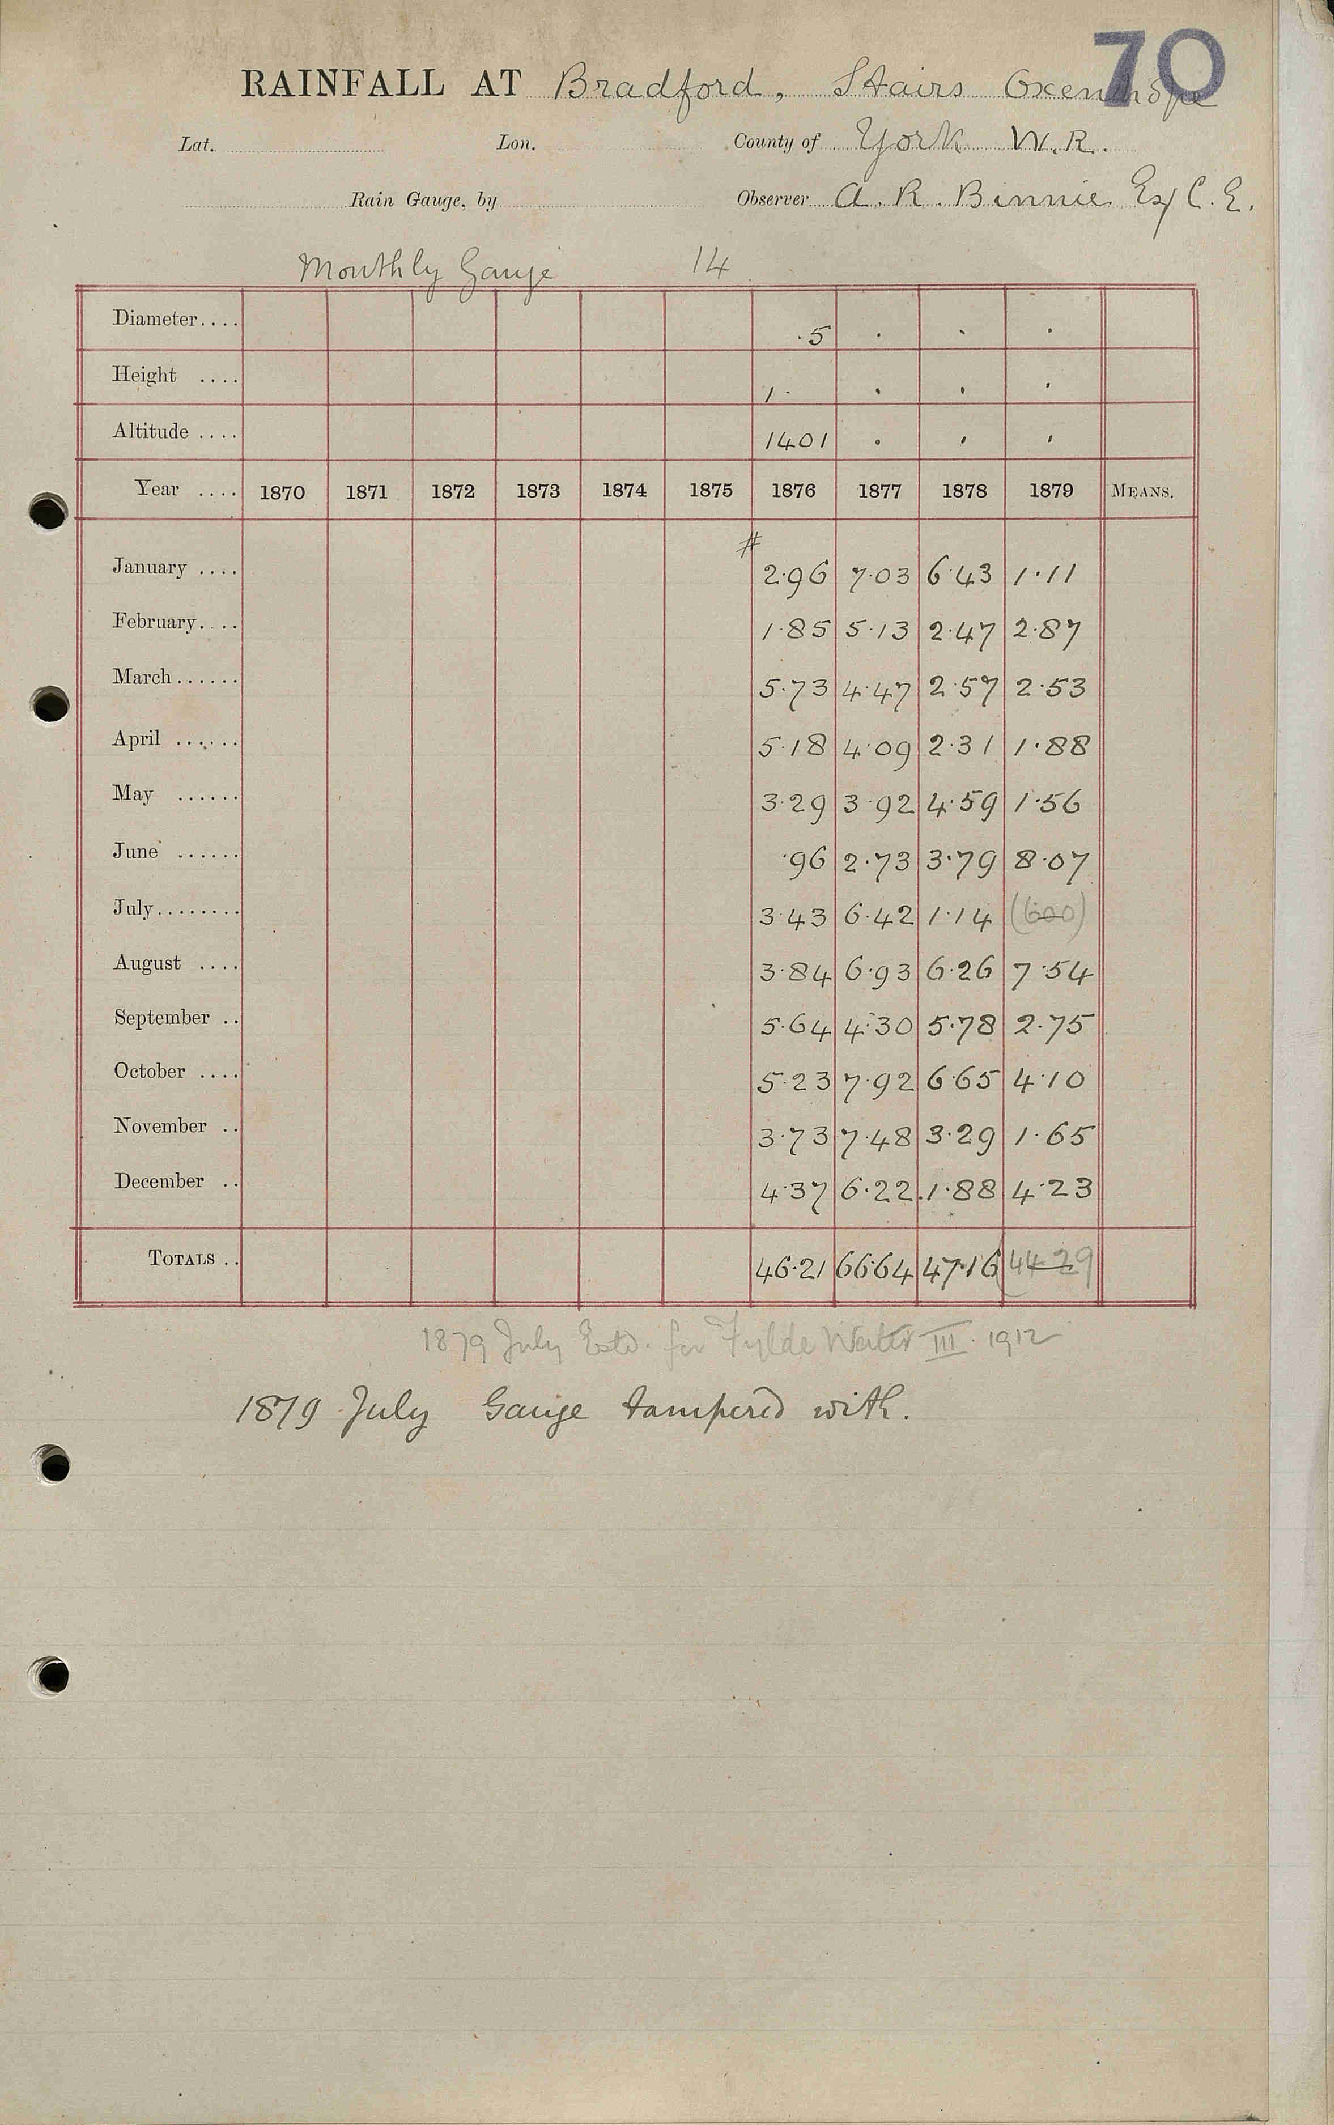 70
RAINFALL AT Bradford, Stairs Oxenhope
Lat. Lon. County of York W.R.
Rain Gauge, by Observer A. R. Binnie Esq C.E.
Monthly Gauge 14
Diameter.... ·5 · · ·
Height .... 1· · · ·
Altitude .... 1401 · · ·
Year .... 1870 1871 1872 1873 1874 1875 1876 1877 1878 1879 MEANS.
#
January .... 2·96 7·03 6·43 1·11
February.... 1·85 5·13 2·47 2·87
March...... 5·73 4·47 2·57 2·53
April ...... 5·18 4·09 2·31 1·88
May ...... 3·29 3·92 4·59 1·56
June ...... ·96 2·73 3·79 8·07
July........ 3·43 6·42 1·14 (600)
August .... 3·84 6·93 6·26 7·54
September .. 5·64 4·30 5·78 2·75
October .... 5·23 7·92 6·65 4·10
November .. 3·73 7·48 3·29 1·65
December .. 4·37 6·22 1·88 4·23
TOTALS .. 46·21 66·64 47·16 (44·29
1879 July Estd. for Fylde Water III. 1912
1879 July Gauge tampered with.